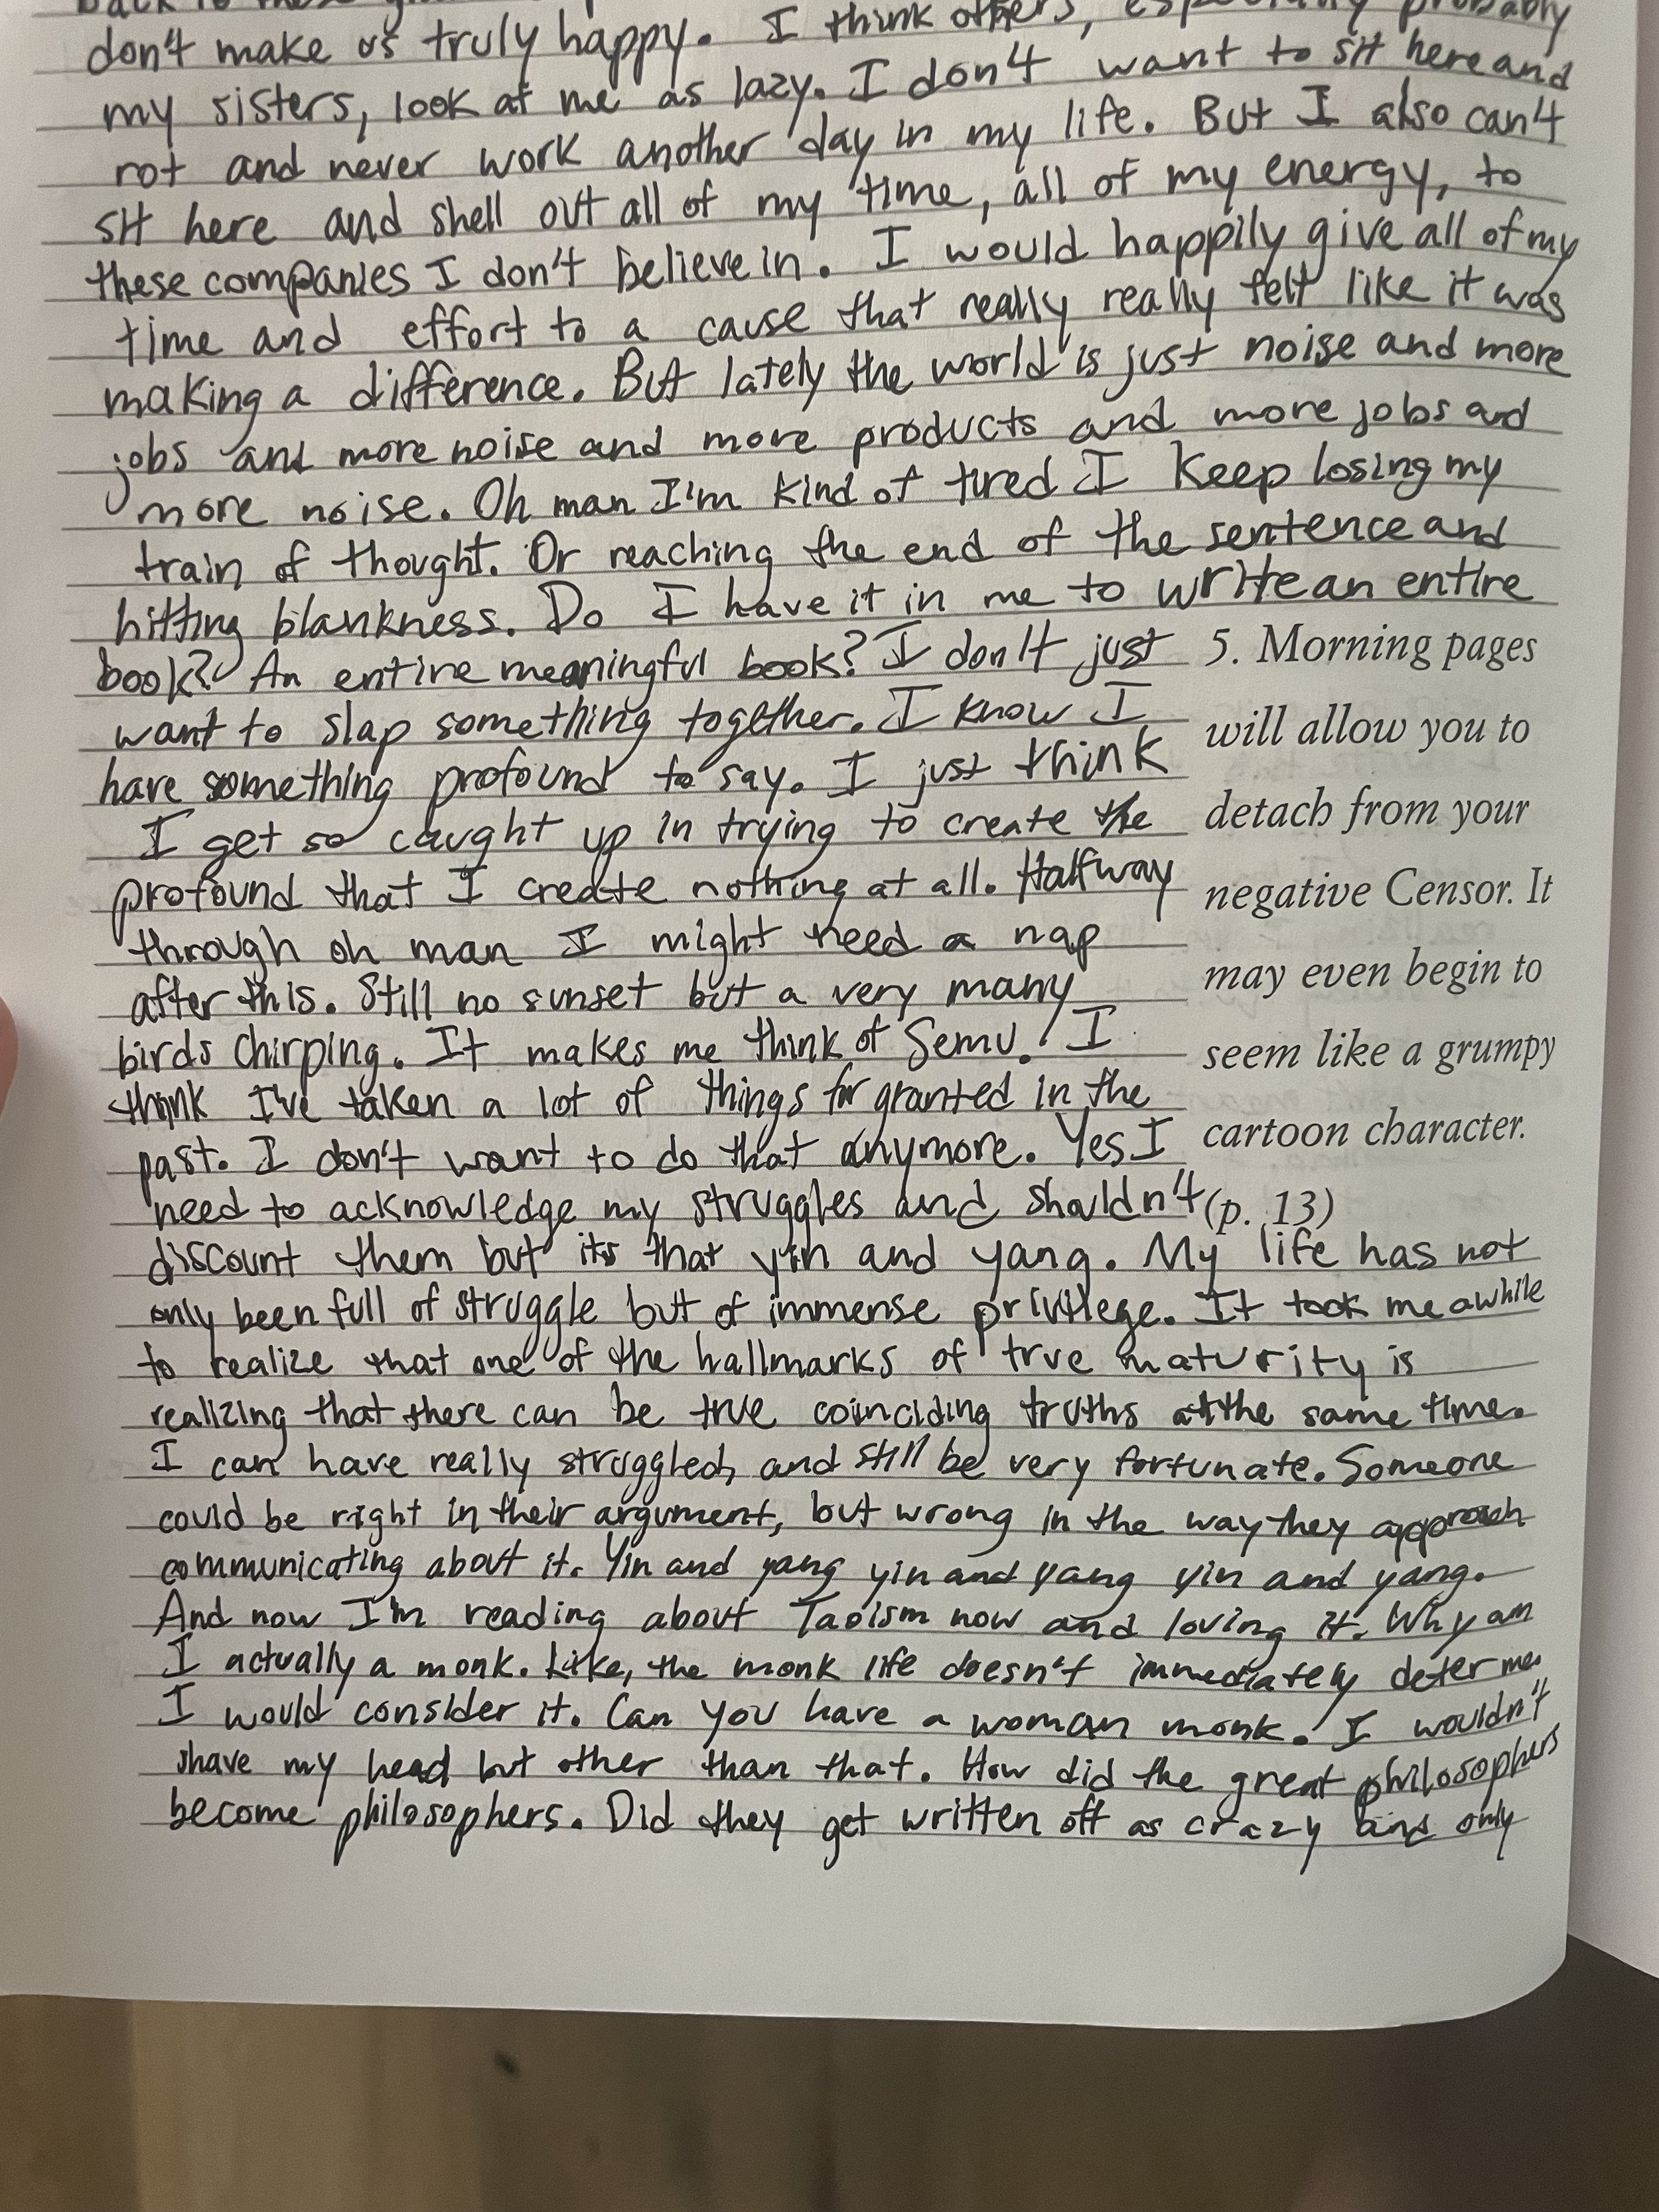 back to these
don't make us truly happy. I think others, especially probably
my sisters, look at me as lazy. I don't want to sit here and
rot and never work another day in my life. But I also can't
sit here and shell out all of my time, all of my energy, to
these companies I don't believe in. I would happily give all of my
time and effort to a cause that really really felt like it was
making a difference. But lately the world is just noise and more
jobs and more noise and more products and more jobs and
more noise. Oh man I'm kind of tired I keep losing my
train of thought. Or reaching the end of the sentence and
hitting blankness. Do I have it in me to write an entire
book? An entire meaningful book? I don't just
want to slap something together. I know I
have something profound to say. I just think
I get so caught up in trying to create the
profound that I create nothing at all. Halfway
through oh man I might need a nap
after this. Still no sunset but a very many
birds chirping. It makes me think of Semu. I
think I've taken a lot of things for granted in the
past. I don't want to do that anymore. Yes I
need to acknowledge my struggles and shouldn't
discount them but its that yin and yang. My life has not
only been full of struggle but of immense privilege. It took me awhile
to realize that one of the hallmarks of true maturity is
realizing that there can be true coinciding truths at the same time.
I can have really struggled, and still be very fortunate. Someone
could be right in their argument, but wrong in the way they approach
communicating about it. Yin and yang yin and yang yin and yang.
And now I'm reading about Taoism now and loving it. Why am
I actually a monk. Like, the monk life doesn't immediately deter me.
I would consider it. Can you have a woman monk. I wouldn't
shave my head but other than that. How did the great philosophers
become philosophers. Did they get written off as crazy and only
5. Morning pages
will allow you to
detach from your
negative Censor. It
may even begin to
seem like a grumpy
cartoon character.
(p. 13)